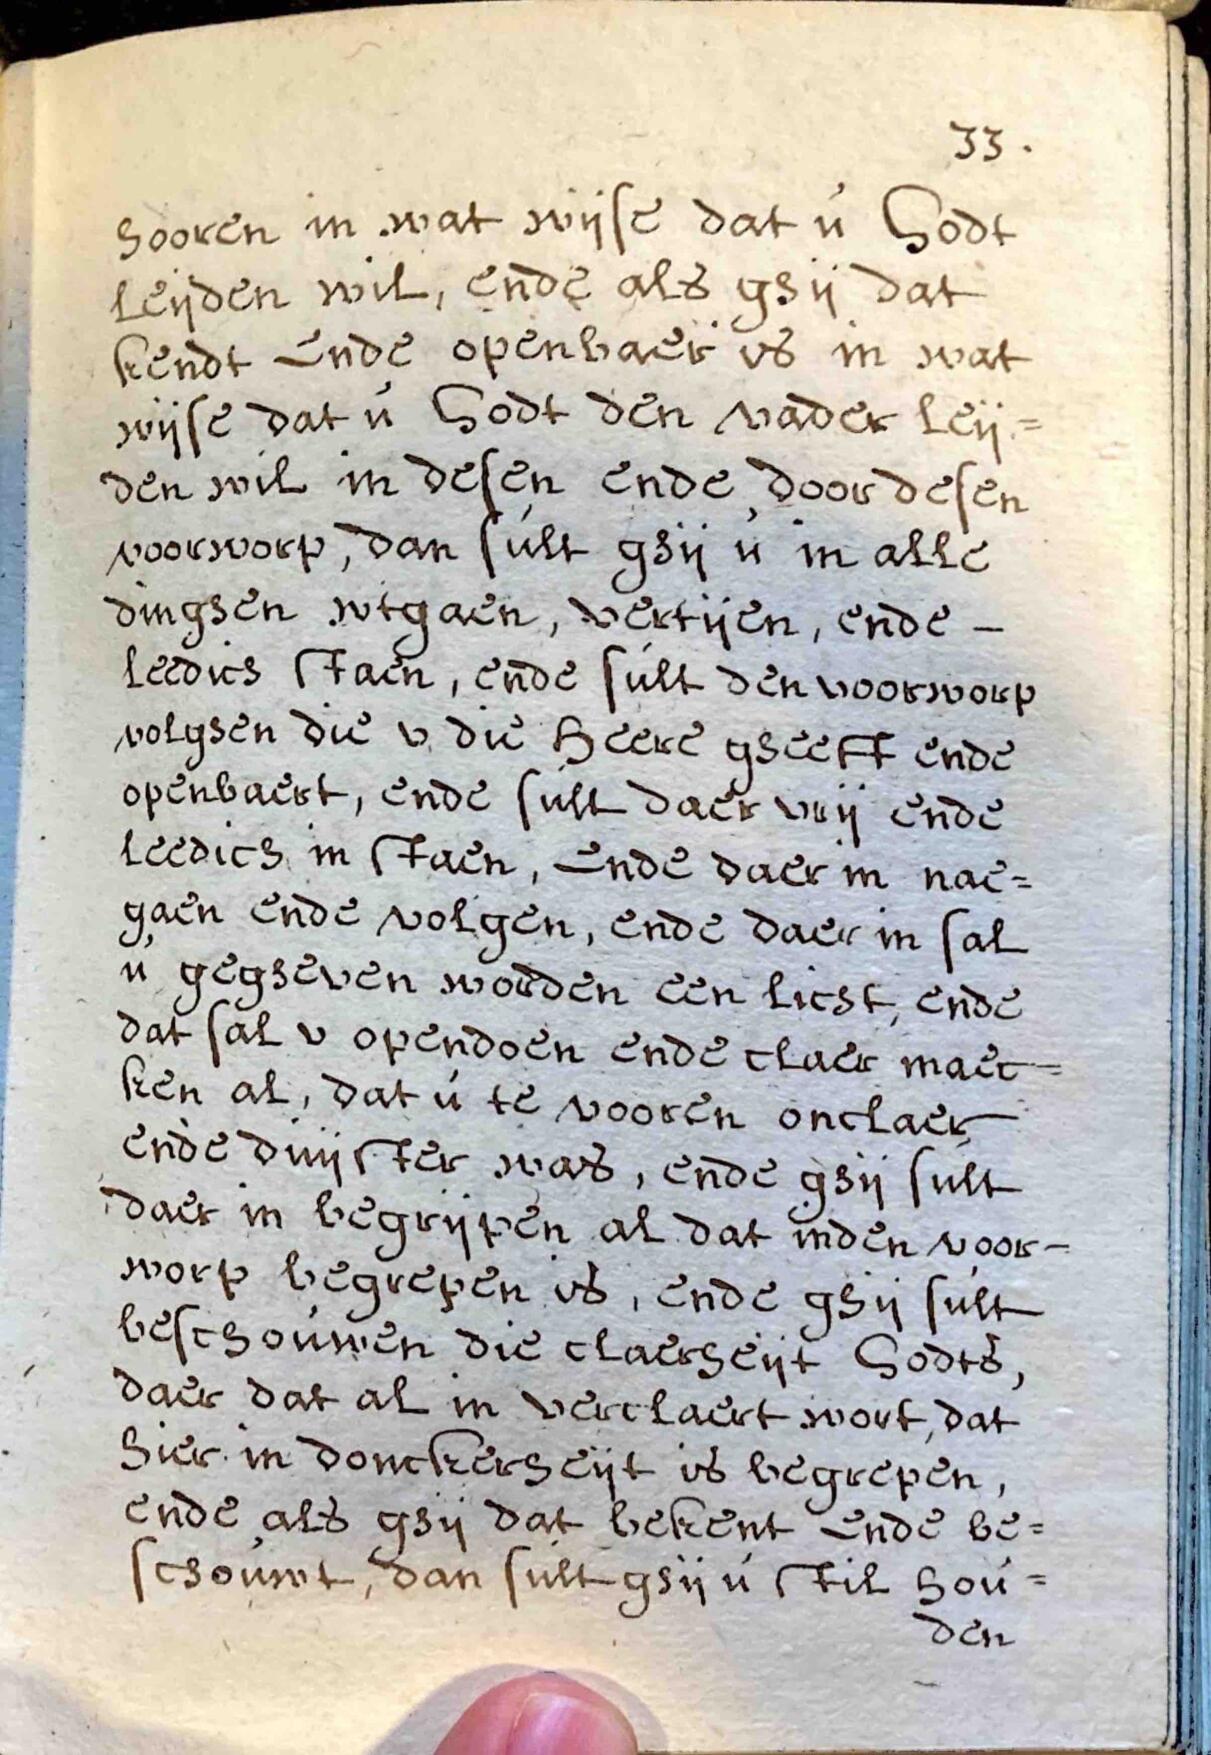 33.
hooren in wat wijse dat ú Godt
leijden wil, ende als ghij dat
kendt Ende openbaer is in wat
wijse dat ú Godt den vader leij=
den wil in desen ende door desen
voorworp, dan súlt ghij ú in alle
dinghen wtgaen, vertijen, ende –
leedich staen, ende súlt den voorworp
volghen die v die Heere gheeft ende
openbaert, ende súlt daer vrij ende
leedich in staen, Ende daer in nae=
gaen ende volgen, ende daer in sal
ú gegheven worden een licht, ende
dat sal v opendoen ende claer maec=
ken al, dat ú te vooren onclaer
ende duijster was, ende ghij súlt
daer in begrijpen al dat inden voor–
worp begrepen is, ende ghij súlt
beschoúwen die claerheijt Godts,
daer dat al in verclaert wort, dat
hier in donckerheijt is begrepen,
ende als ghij dat bekent Ende be=
schoúwt, dan súlt ghij ú stil hoú=
den